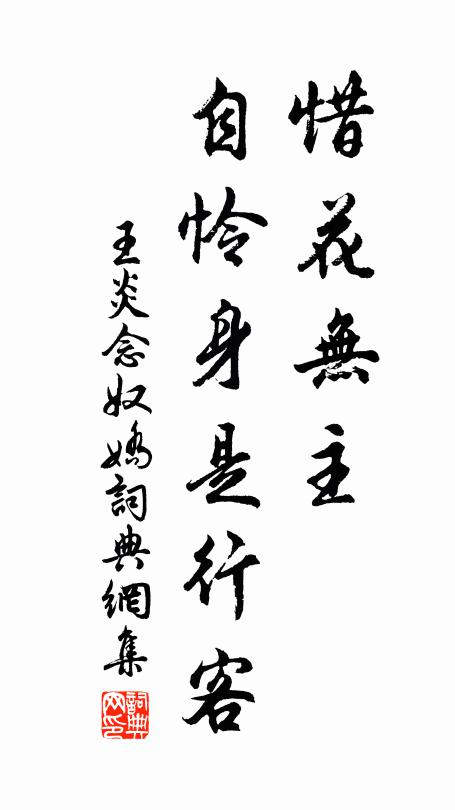 惜花無主
自憐身是行客
王炎念奴嬌詞典網集
詞典
网印